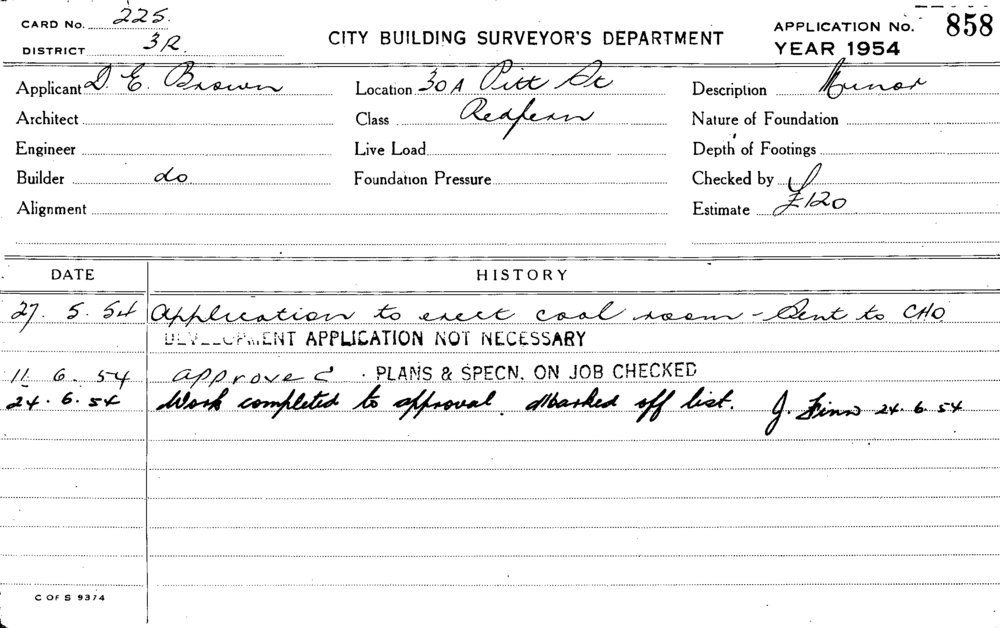 CARD No. 225.
DISTRICT 3R.
CITY BUILDING SURVEYOR'S DEPARTMENT
APPLICATION No. 858
YEAR 1954
Applicant D. E. Brown Location 30A Pitt St Description Minor
Architect Class Redfern Nature of Foundation
Engineer Live Load Depth of Footings
Builder do Foundation Pressure Checked by
Alignment Estimate £120
DATE HISTORY
27. 5. 54 Application to erect cool room - Sent to CHO
DEVELOPMENT APPLICATION NOT NECESSARY
11. 6. 54 approved . PLANS & SPECN. ON JOB CHECKED
24. 6. 54 Work completed to approval. Marked off list. J. Finn 24. 6. 54
C OF S 9374